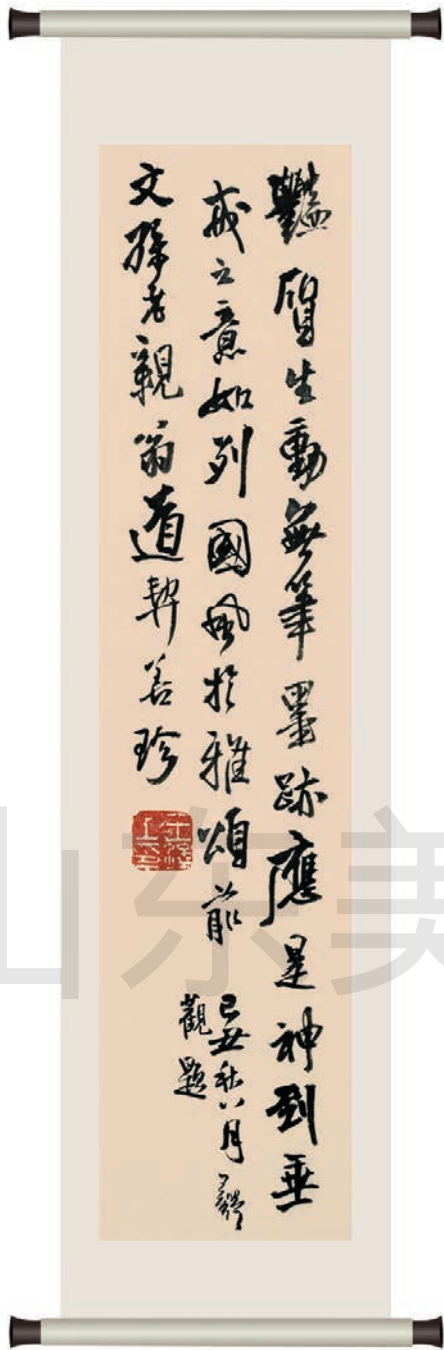 豔質生動無筆墨跡應是神到垂
戒之意如列國風於雅頌前
己丑秋八月
觀題
文孫老親翁道契善珍
山东美